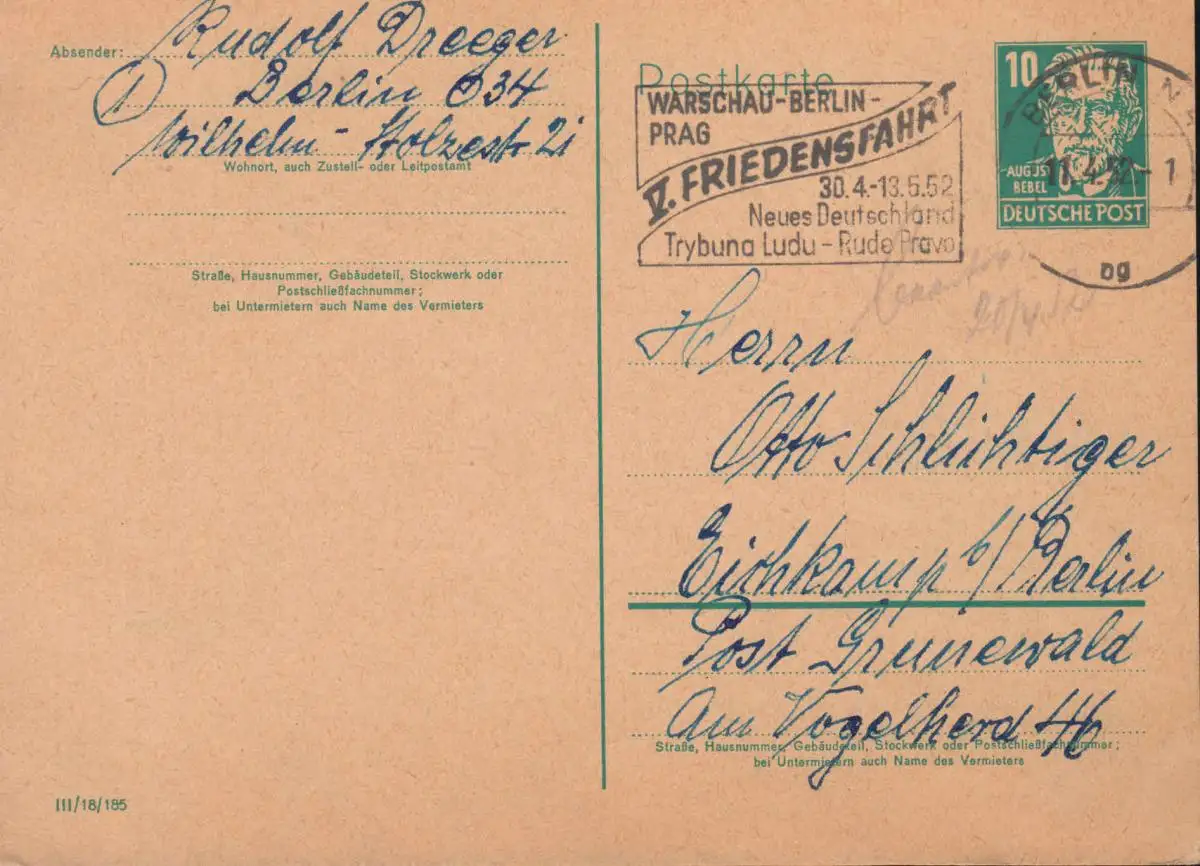 Absender: Rudolf Dreeger
(1) Berlin O34
Wilhelm-Stolzestr 21
Wohnort, auch Zustell- oder Leitpostamt
Straße, Hausnummer, Gebäudeteil, Stockwerk oder
Postschließfachnummer;
bei Untermietern auch Name des Vermieters
III/18/185
Postkarte
WARSCHAU-BERLIN-
PRAG
V. FRIEDENSFAHRT
30.4.-13.5.52
Neues Deutschland
Trybuna Ludu - Rude Pravo
10
AUGUST
BEBEL
DEUTSCHE POST
BERLIN N
11.4.52-1
bg
20/4.52
Herrn
Otto Schlichtiger
Eichkamp b/Berlin
Post Grunewald
Am Vogelherd 46
Straße, Hausnummer, Gebäudeteil, Stockwerk oder Postschließfachnummer;
bei Untermietern auch Name des Vermieters